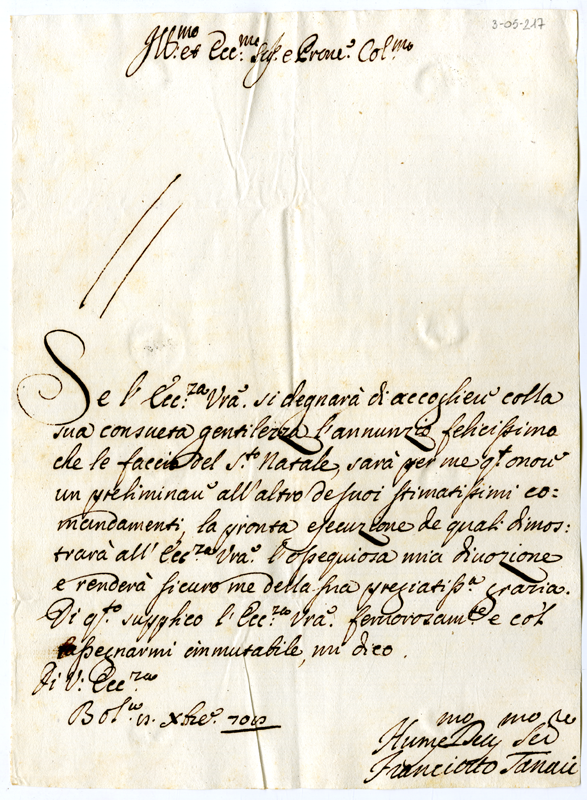 3-05-217
Ill.mo et Ecc.mo Sig.e e Prone. Col.mo
Se l'Ecc.za Vra. si degnarà di accoglier colla
sua consueta gentilezza l'annunzio felicissimo
che le faccio del S.to Natale, sarà per me q.t onor
un preliminar all'altro de suoi stimatissimi co=
mandamenti, la pronta esecuzione de quali dimos=
trarà all'Ecc.za Vra. l'ossequiosa mia divozione
e renderà sicuro me della sua pregiatiss.a grazia.
Di q.to supplico l'Ecc.za Vra. fervorosam.te e col
rassegnarmi immutabile, mi dico.
Di V. Ecc.za
Bol.a Xbre.
Hum.mo Dev.mo Ser.re
Franciotto Tanari